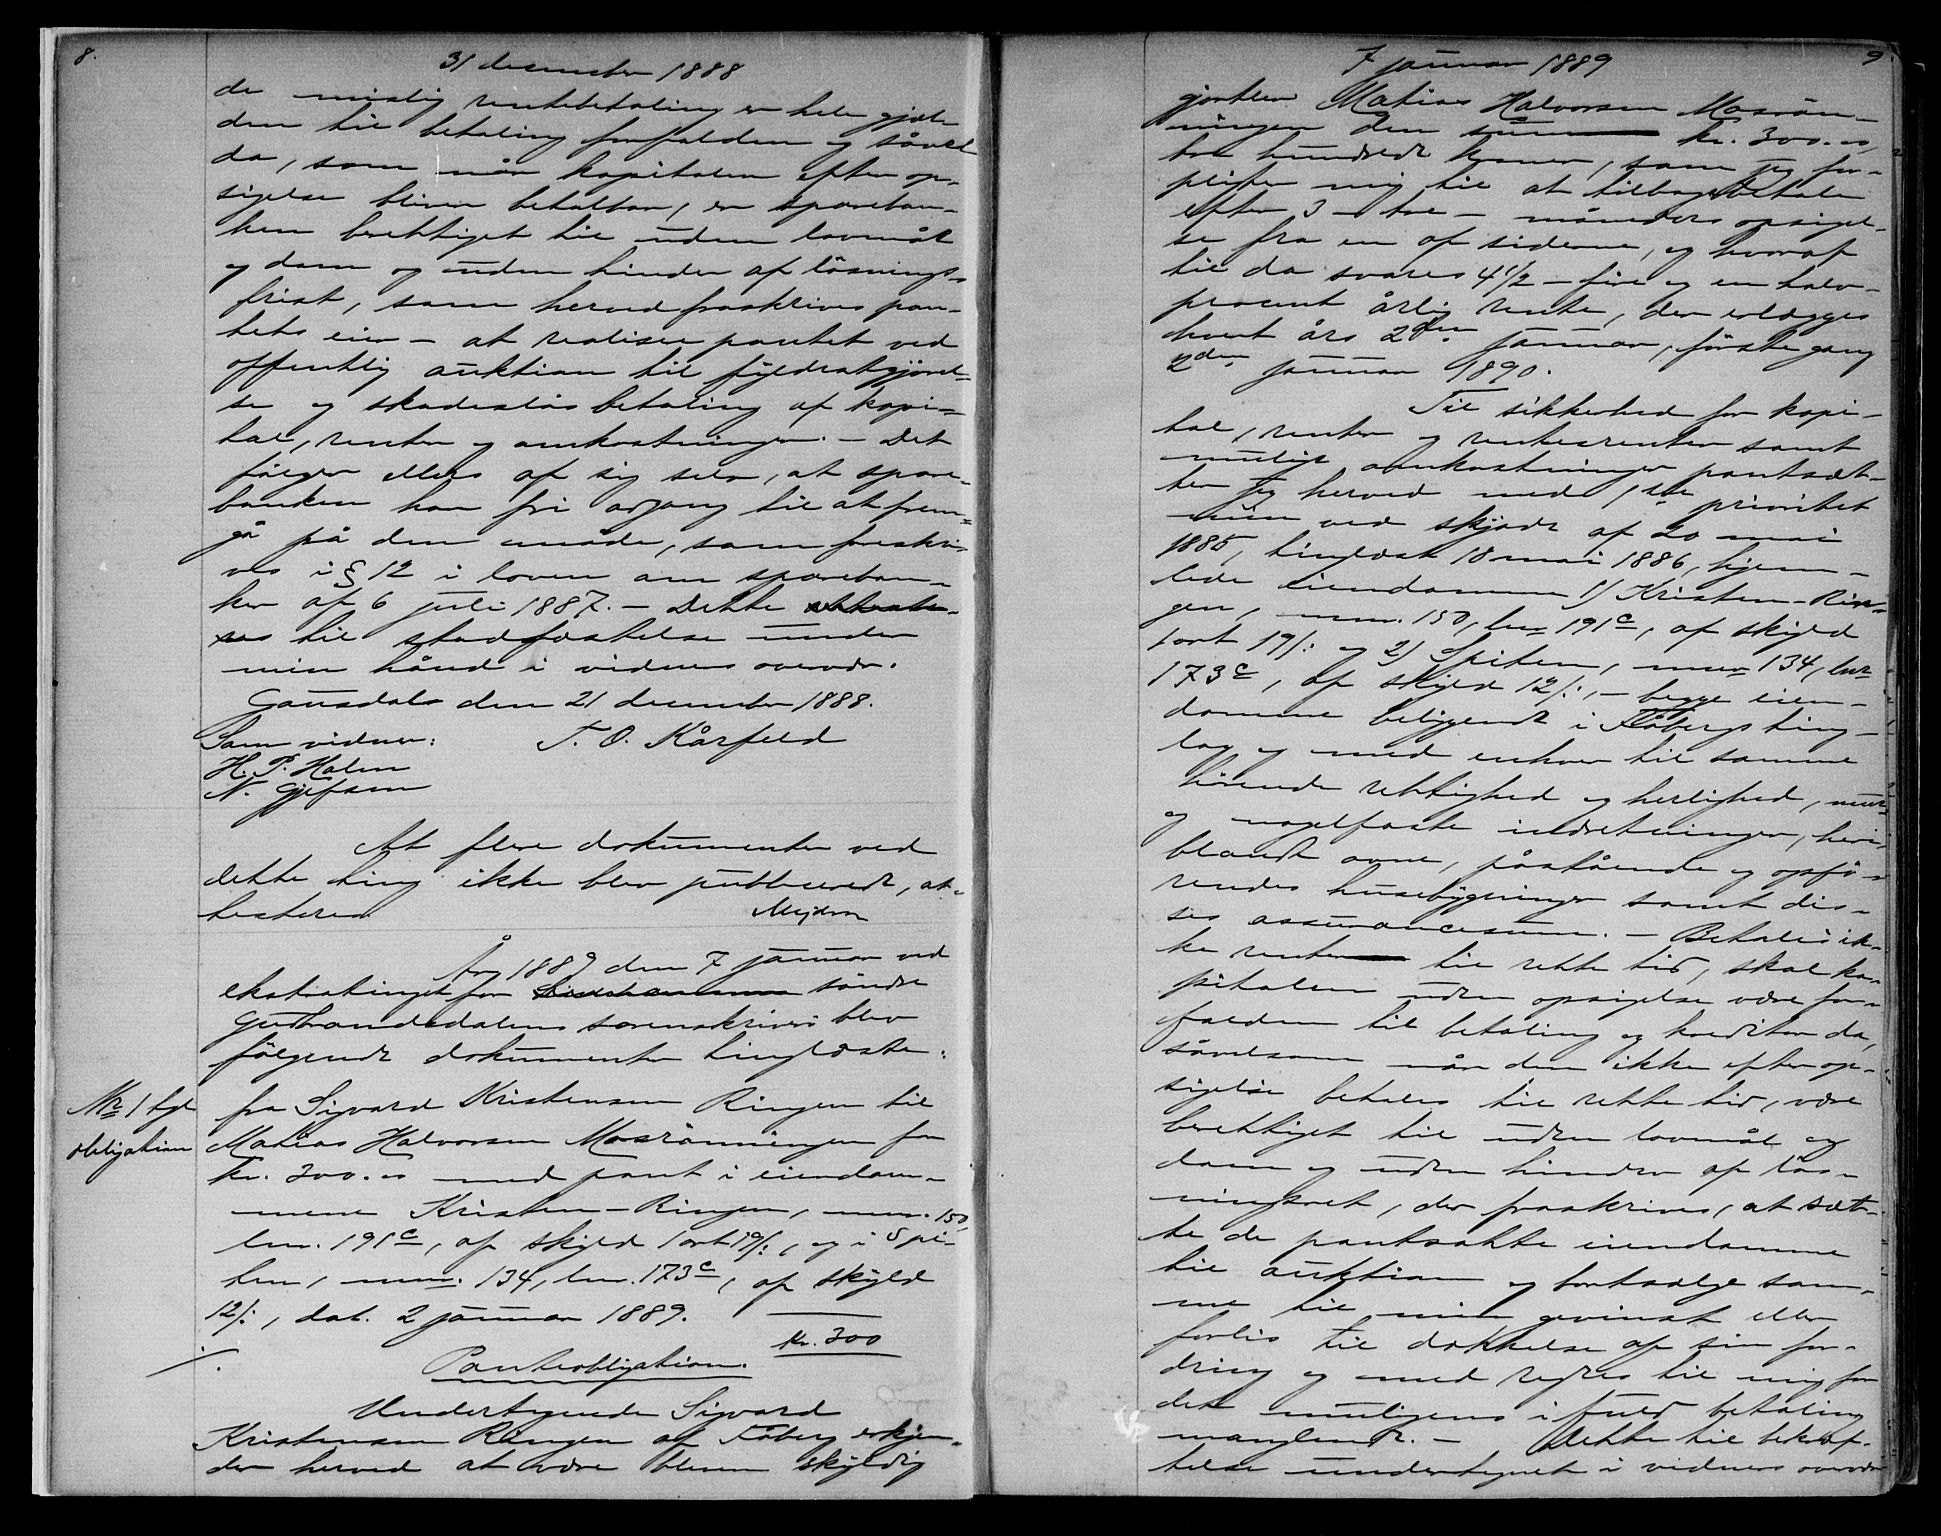 8.
31 december 1888
de mislig rentebetaling er hele gjæl-
den til betaling forfalden og såvel
da, som når kapitalen efter op-
sigelse bliver betalbar, er spareban-
ken berettiget til uden lovmål
og dom og uden hinder af løsnings-
frist, som herved fraskrives pan-
tets eier – at realisere pantet ved
offentlig auktion til fyldestgjørel-
se og skadesløs betaling af kapi-
tal, renter og omkostninger. – Det
følger ellers af sig selv, at spare-
banken har fri adgang til at frem-
gå på den måde, som foreskri-
ves i § 12 i loven om spareban-
ker af 6 juli 1887. – Dette
til stadfæstelse under
min hånd i vidners overvær.
Gausdal den 21 december 1888.
Som vidner: T. O. Kårfeld
H. P. Holm
N.
At flere dokumenter ved
dette ting ikke blev publiceret, at-
testeres
År 1889 den 7 januar ved
ekstratinget for søndre
Gudbrandsdalens sorenskriveri blev
følgende dokumenter tinglæste:
No 1 tgl.
obligation
fra Sigvard Kristensen Ringen til
Matias Halvorsen Mosrønningen for
kr. 300.00 med pant i eiendom-
mene Kristen-Ringen, mnr. 150,
lnr. 191c, af skyld 1 ort 19/:, og i Spi-
ten, mnr. 134, lnr. 173c, af skyld
12/:, dat. 2 januar 1889.
Kr. 300
Panteobligation.
Undertegnede Sigvard
Kristensen Ringen af Fåberg erkjen-
der herved at være bleven skyldig
7 januar 1889
9.
gjørtler Matias Halvorsen Mosrøn-
ningen den sum kr. 300.00,
tre hundrede kroner, som jeg for-
pligter mig til at tilbagebetale
efter 3 – tre – måneders opsigel-
se fra en af siderne, og hvoraf
til da svares 4 1/2 – fire og en halv –
procent årlig rente, der erlægges
hvert års 2den januar, første gang
2den januar 1890.
Til sikkerhed for kapi-
tal, renter og rentesrenter samt
mulige omkostninger pantsæt-
ter jeg herved med 1ste prioritet
min ved skjøde af 20 mai
1885, tinglæst 18 mai 1886, hjem-
lede eiendomme 1) Kristen-Rin-
gen, mnr. 150, lnr 191c, af skyld
1 ort 19/: og 2) Spiten, mnr 134, lnr
173c, af skyld 12/:, – begge eien-
domme beliggende i Fåbergs ting-
lag og med enhver til samme
hørende rettighed og herlighed, mur-
og nagelfaste indretninger, heri-
blandt ovne, påstående og opfø-
rendes husebygninger samt dis-
ses assurancesum. – Betales ik-
ke renter til rette tid, skal ka-
pitalen uden opsigelse være for-
falden til betaling og kreditor da,
såvelsom når den ikke efter op-
sigelse betales til rette tid, være
berettiget til uden lovmål og
dom og uden hinder af løs-
ningsret, der fraskrives, at sæt-
te de pantsatte eiendomme
til auktion og bortsælge sam-
me til min gevinst eller
forlis til dækkelse af sin for-
dring og med regres til mig for
det muligens i fuld betaling
manglende. – Dette til bekræf-
telse undertegnet i vidners overvær